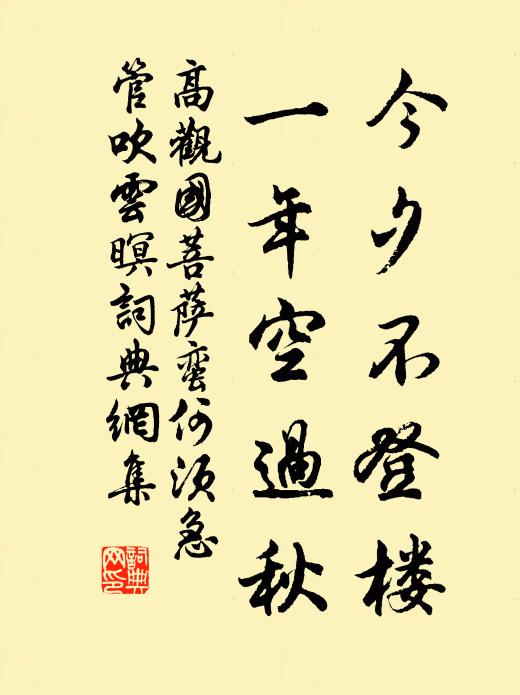 今夕不登楼
一年空過秋
高觀國菩薩蠻何須急
管吹雲暝詞典網集
詞典
网印